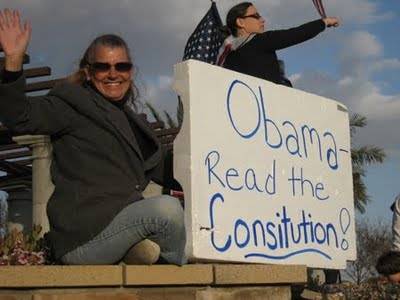 Obama-
Read the
Consitution!